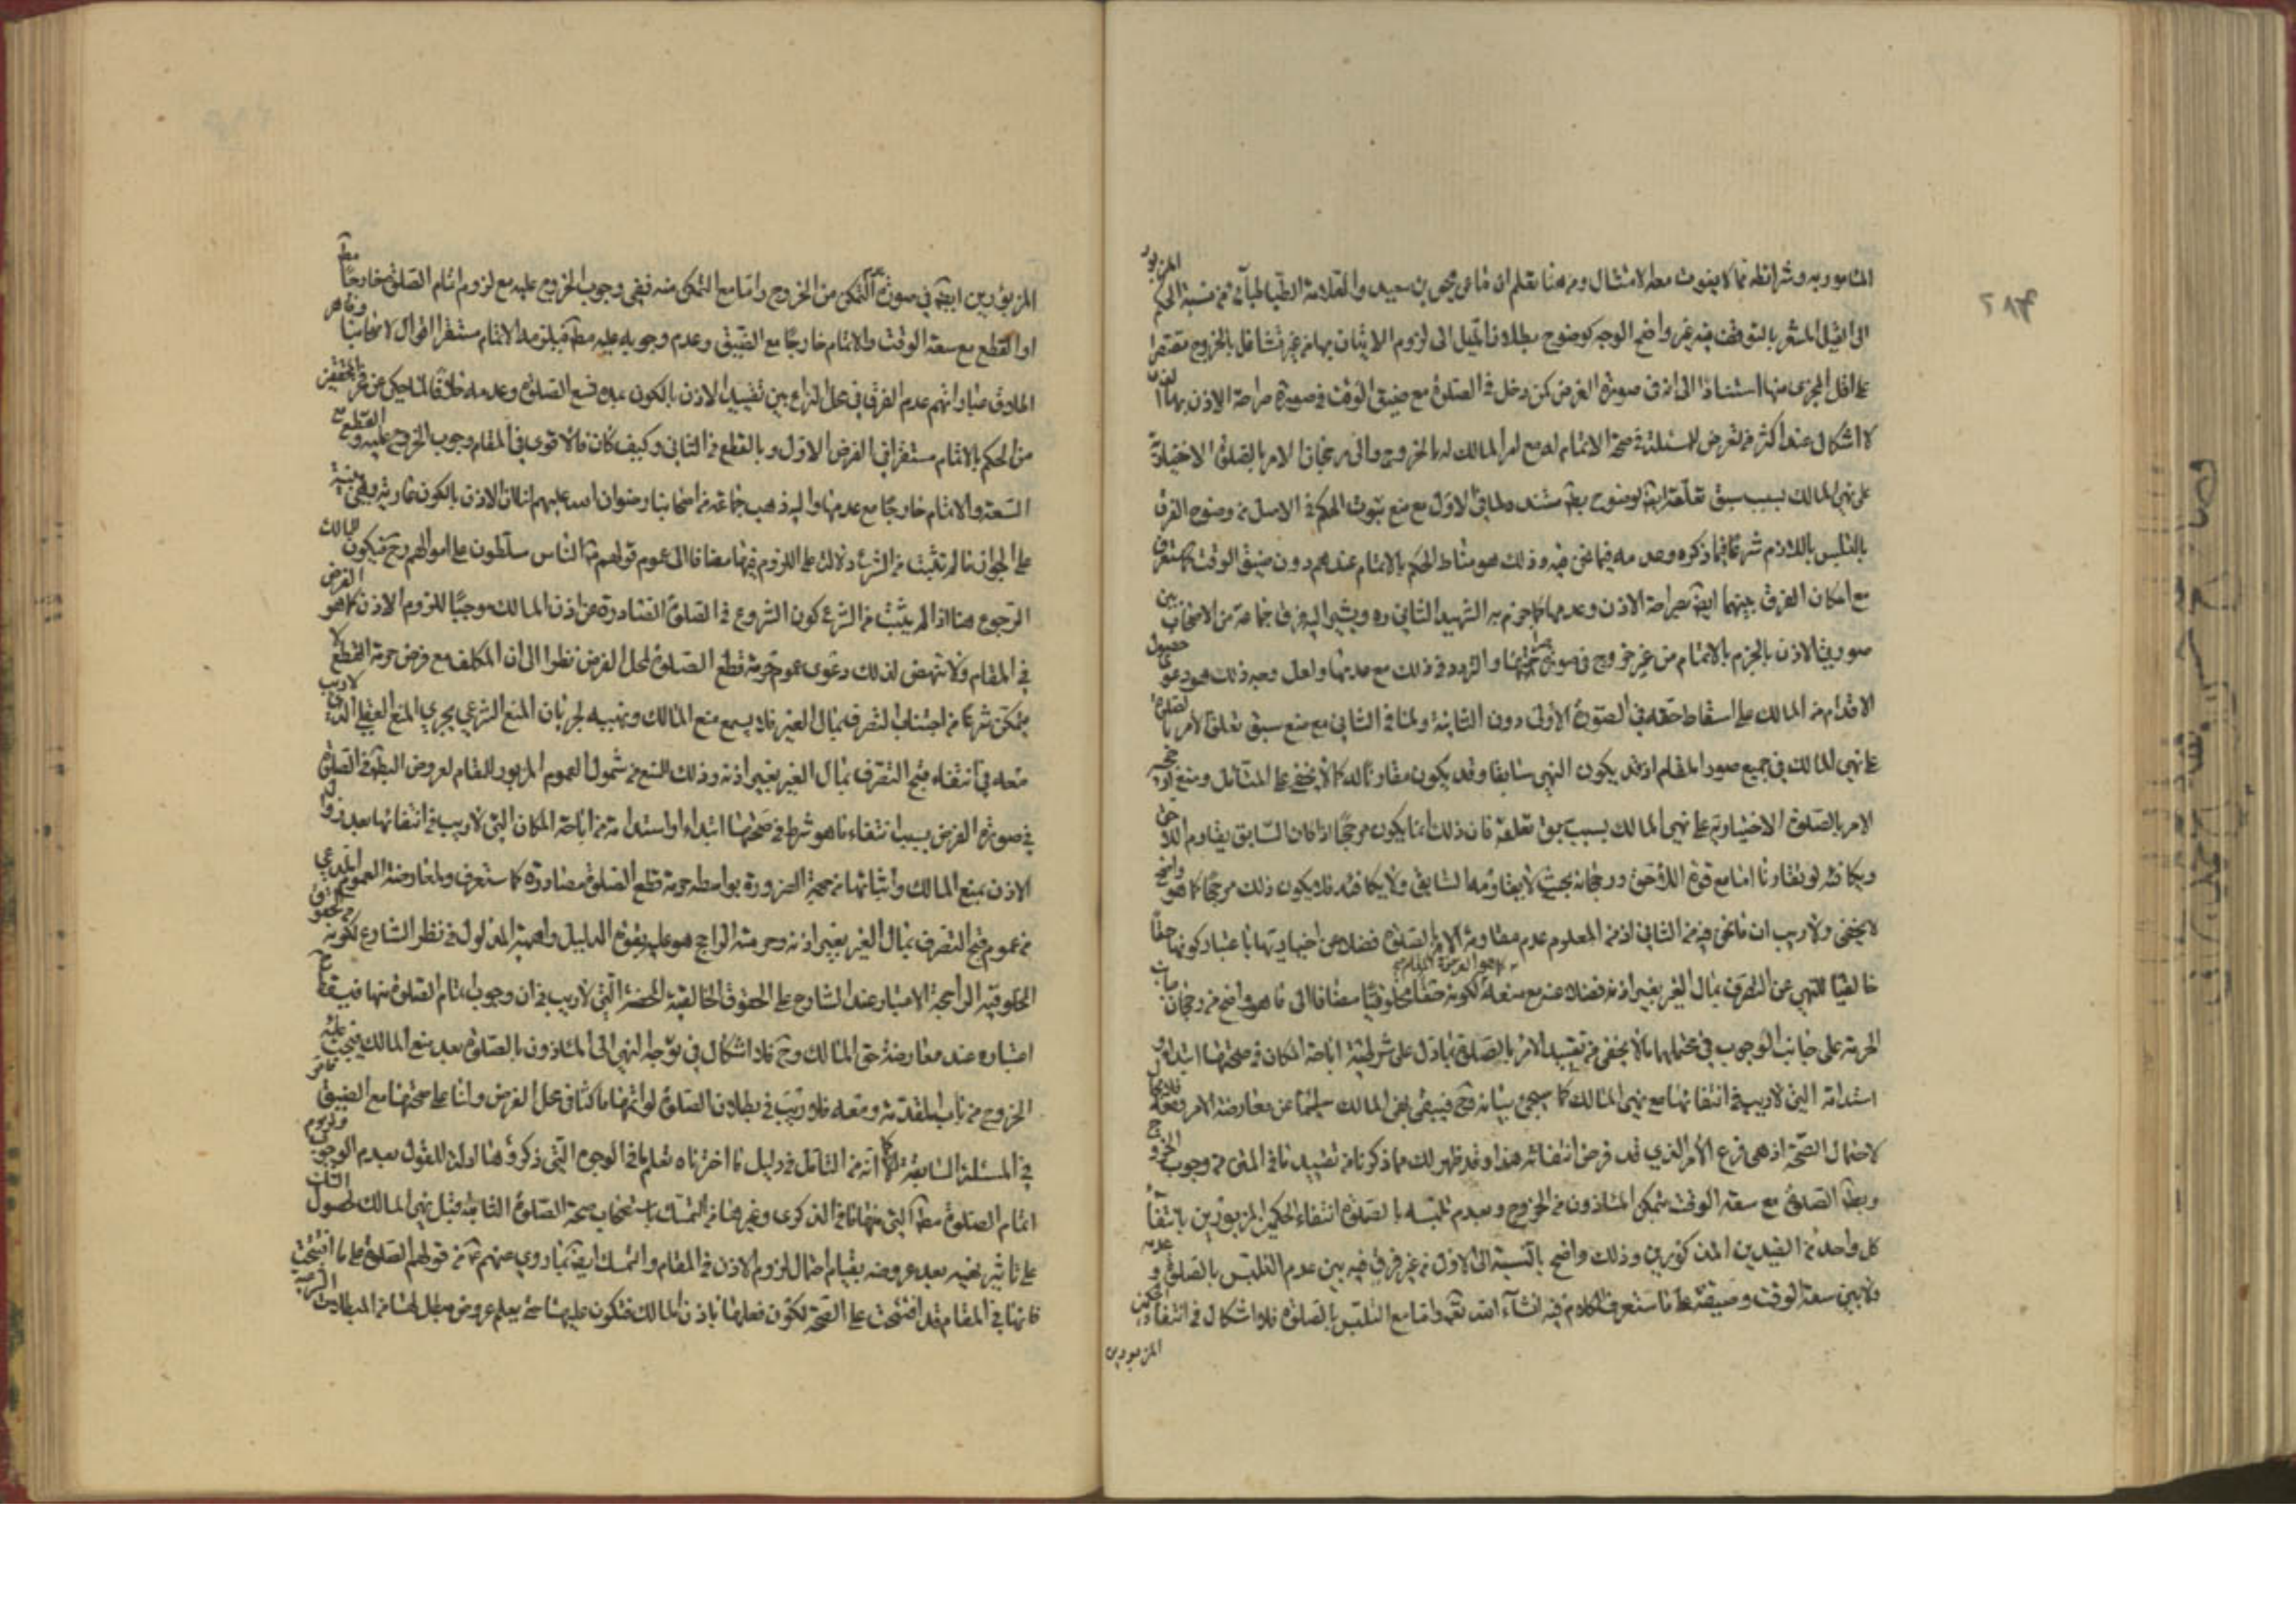 ٢٨٤
المامور به وشرائطه مما لا يفوت معه الامتثال ومن هنا تعلم ان ما عن يحيى بن سعيد والعلامة الطباطبائي من نسبة الحكم المزبور
الى القيل المشعر بالتوقف فيه غير واضح الوجه كوضوح بطلان الميل الى لزوم الاتيان بها من غير تشاغل بالخروج مقتصرا
على اقل المجزى منها استنادا الى انه في صورة الفرض كمن دخل في الصلوة مع ضيق الوقت في صورة صراحة الاذن بها
لا اشكال عند اكثر من تعرض للمسئلة في صحة الاتمام له مع امر المالك له بالخروج والى رجحان الامر بالصلوة الاختيارية
على نهي المالك بسبب سبق تعلقه ايضا لوضوح بطلان مستنده لمنافى الاول مع منع ثبوت الحكم في الاصل من وضوح الفرق
بالتلبس باللازم شرعا فيما ذكره وعدمه فيما نحن فيه وذلك هو مناط الحكم بالاتمام عندهم دون ضيق الوقت كما ستعرف
مع امكان الفرق بينهما ايضا بصراحة الاذن وعدمها كما جزم به الشهيد الثاني ره ويشير اليه فرق جماعة من الاصحاب بين
صورتي الاذن بالجزم بالاتمام من غير خروج في صورة صراحتها والتردد في ذلك مع عدمها ولعل وجه ذلك هو دعوى حصول
الاقدام من المالك على اسقاط حقه في الصورة الاولى دون الثانية ولما في الثاني مع منع سبق تعلق الامر بالصلوة
على نهي المالك في جميع صور المقام اذ قد يكون النهي سابقا وقد يكون مقارنا له كما لا يخفى على المتامل ومنع
الامر بالصلوة الاختيارية على نهي المالك بسبب سبق تعلقه فان ذلك انما يكون مرجحا اذا كان السابق يقاوم اللاحق
ويكافئه لو تقارنا اما مع قوة اللاحق ورجحانه بحيث لا يقاومه السابق ولا يكافئه فلا يكون ذلك مرجحا كما هو واضح
لا يخفى ولا ريب ان ما نحن فيه من الثاني اذ من المعلوم عدم مقاومة الامر بالصلوة فضلا عن اختياريتها باعتبار كونها حقا
خالقيا للنهي عن التصرف بمال الغير بغير اذنه فضلا عنه مع منعه لكونه حقا مخلوقيا مضافا الى ما هو واضح من رجحان
الحرمة على جانب الوجوب في محتملهما لا يخفى من تقييد الامر بالصلوة بما دل على شرطية اباحة المكان في صحتها ابتداء و
استدامة التي لا ريب في انتفائها مع نهي المالك كما سيجئ بيانه وح فيبقى نهي المالك سليما عن معارضة الامر ومعه فلا
لاحتمال الصحة اذ هي فرع الامر الذي قد فرض انتفائه هذا وقد ظهر لك مما ذكرنا من تقييد ما في المتن من وجوب الخروج
وبطلان الصلوة مع سعة الوقت بتمكن المأذون من الخروج وبعدم تلبسه بالصلوة انتفاء الحكمين المزبورين بانتفاء
كل واحد من القيدين المذكورين وذلك واضح بالنسبة الى الاول من غير فرق فيه بين عدم التلبس بالصلوة وعدمه
ولا بين سعة الوقت وضيقه على ما ستعرف الكلام فيه انشاء الله تعالى واما مع التلبس بالصلوة فلا اشكال في انتفاء الحكمين
المزبورين
المزبورين ايضا في صورة عدم التمكن من الخروج واما مع التمكن منه ففي وجوب الخروج عليه مع لزوم اتمام الصلوة خارجا مطلقا
او القطع مع سعة الوقت والاتمام خارجا مع الضيق وعدم وجوبه عليه مطلقا فيلزمه الاتمام مستقرا اقوال لاصحابنا وظاهر
اطلاق عباراتهم عدم الفرق في محل النزاع بين تقييد الاذن بالكون بعدم قطع الصلوة وعدمه خلافا لما حكي عن فخر المحققين
من الحكم بالاتمام مستقرا في الفرض الاول وبالقطع في الثاني وكيف كان فالاقوى في المقام وجوب الخروج عليه والقطع مع
السعة والاتمام خارجا مع عدمها واليه ذهب جماعة من اصحابنا رضوان الله عليهم اذ الاذن بالكون عارية وهي مبنية
على الجواز ما لم تثبت من الشرع دلالة على اللزوم فيها مضافا الى عموم قولهم ع الناس مسلطون على اموالهم وح فيكون للمالك
الرجوع هنا اذا لم يثبت من الشرع كون الشروع في الصلوة الصادرة عن اذن المالك موجبا للزوم الاذن كما هو الفرض
في المقام ولا تنهض لذلك دعوى عموم حرمة قطع الصلوة لمحل الفرض نظرا الى ان المكلف مع فرض حرمة القطع لا
يتمكن شرعا من اجتناب التصرف بمال الغير فلا يسمع منع المالك ونهيه لجريان المنع الشرعي مجرى المنع العقلي الذي لا ريب
معه في انتفاء قبح التصرف بمال الغير بغير اذنه وذلك للمنع من شمول العموم المزبور للمقام لعروض البطلان في الصلوة
في صورة الفرض بسبب انتفاء ما هو شرط في صحتها ابتداء او استدامة من اباحة المكان التي لا ريب في انتفائها بعد زوال
الاذن بمنع المالك واثباتها من جهة الضرورة بواسطة حرمة قطع الصلوة مصادرة كما ستعرف ولمعارضة العموم المدعى
من عموم قبح التصرف بمال الغير بغير اذنه وحرمته الراجح هو عليه بقوة الدليل واهمية المدلول في نظر الشارع لكونه من الحقوق
المخلوقية الراجحة الاعتبار عند الشارع على الحقوق الخالقية المحضة التي لا ريب في ان وجوب اتمام الصلوة منها فيسقط ح
اعتباره عند معارضة حق المالك وح فلا اشكال في توجه النهي الى المأذون بالصلوة بعد منع المالك فيجب عليه
الخروج من باب المقدمة ومعه فلا ريب في بطلان الصلوة لو اتمها ماكثا في محل الفرض واما على صحتها مع الضيق
في المسئلة السابقة كما انه من التامل في دليل ما اخترناه تعلم ما في الوجوه التي ذكروها ادلة للقول بعدم الوجوب ولزوم
اتمام الصلوة مطلقا التي منها ما في الذكرى وغيرها من التمسك باستصحاب صحة الصلوة الثابتة قبل نهي المالك لحصول الشك
على تاثير نهيه بعد عروضه بقيام احتمال لزوم الاذن في المقام والتمسك ايضا بما روي عنهم ع من قولهم الصلوة على ما افتتحت
فانها في المقام قد افتتحت على الصحة لكون فعلها باذن المالك فتكون عليها حتى يعلم عروض مبطل لها من المبطلات الشرعية